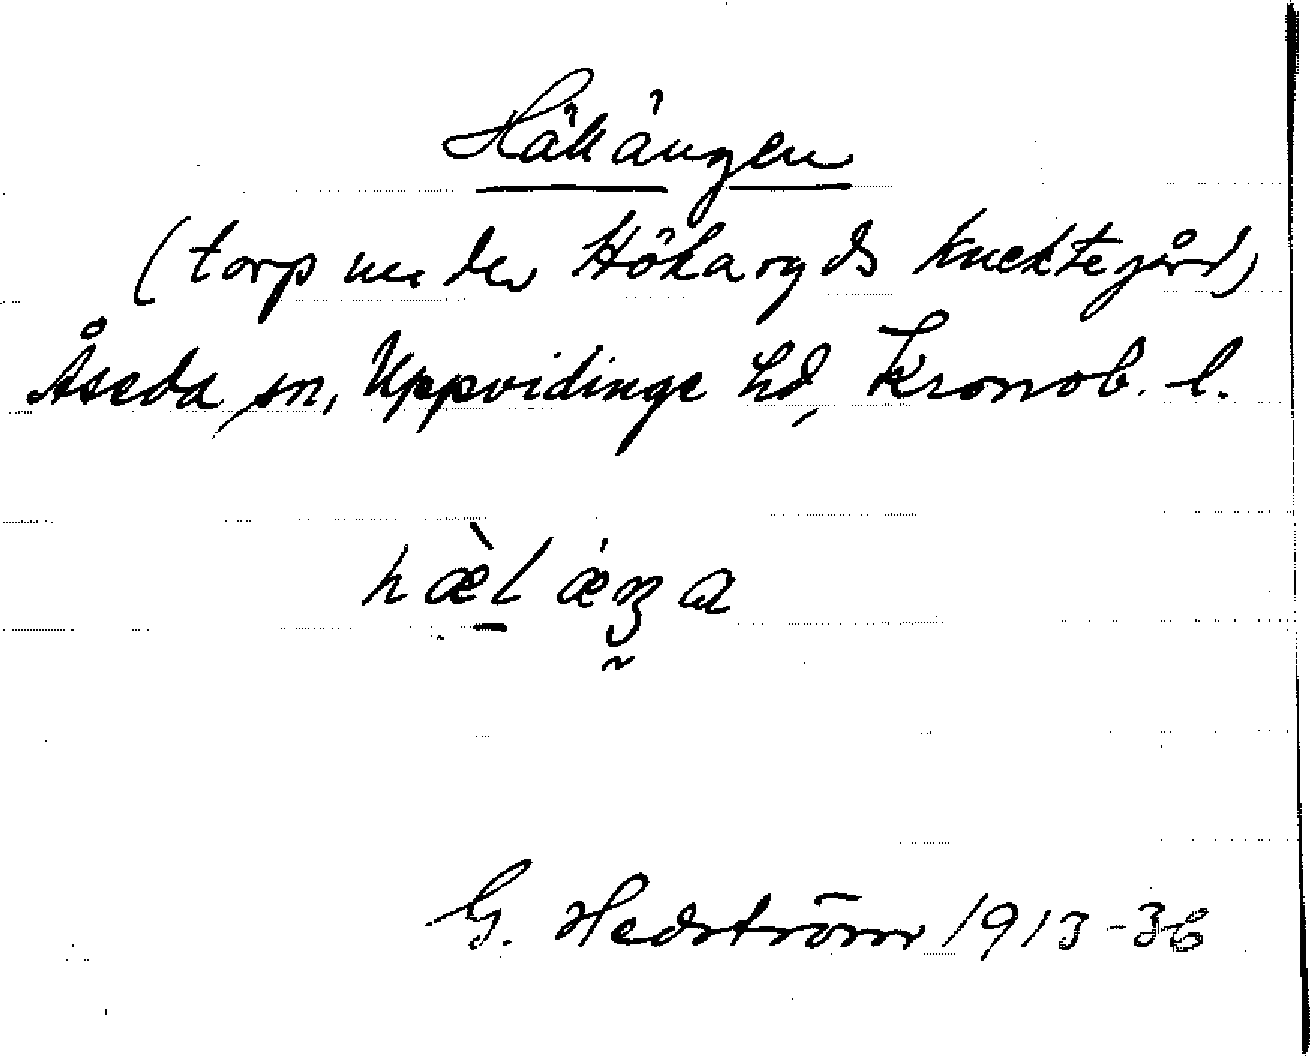 Hälłängen
(torp under Hökaryds knektegård)
Åseda sn, Uppvidinge hd, Kronob. l.
G. Hedström 1913-36